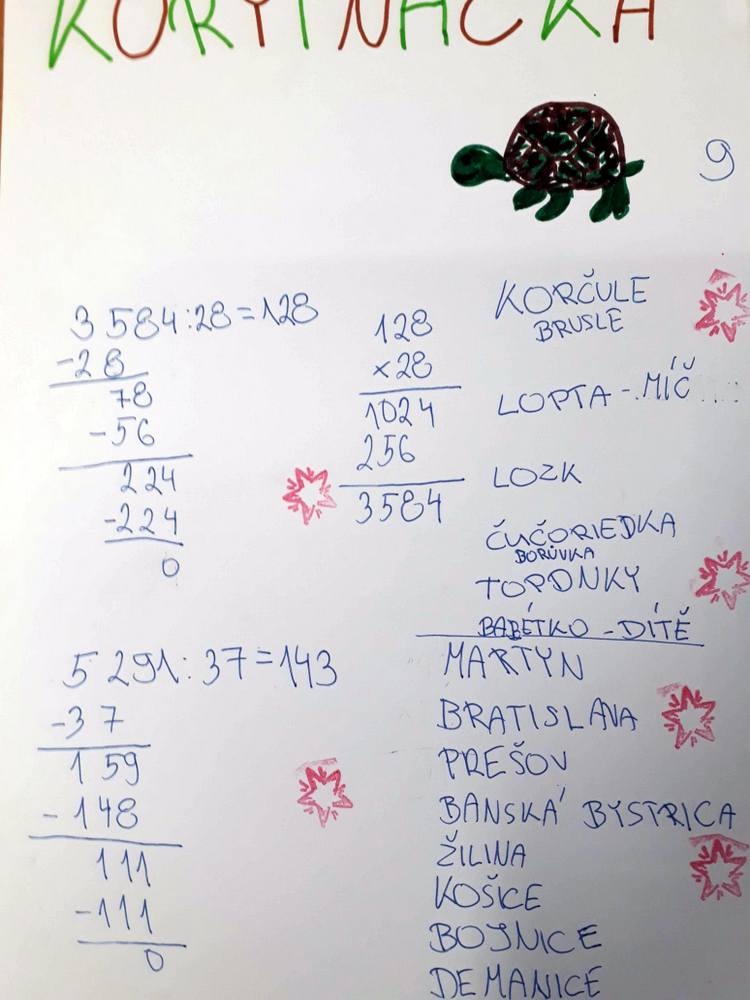 KORYTNAČKA
9
3 584:28=128
-28
78
-56
224
-224
0
128
×28
1024
256
3584
5 291:37=143
-37
159
-148
111
-111
0
KORČULE
BRUSLE
LOPTA - MÍČ
LOZK
ČUČORIEDKA
BORŮVKA
TOPDNKY
BABÉTKO - DÍTĚ
MARTYN
BRATISLAVA
PREŠOV
BANSKÁ BYSTRICA
ŽILINA
KOŠICE
BOJNICE
DEMANICE